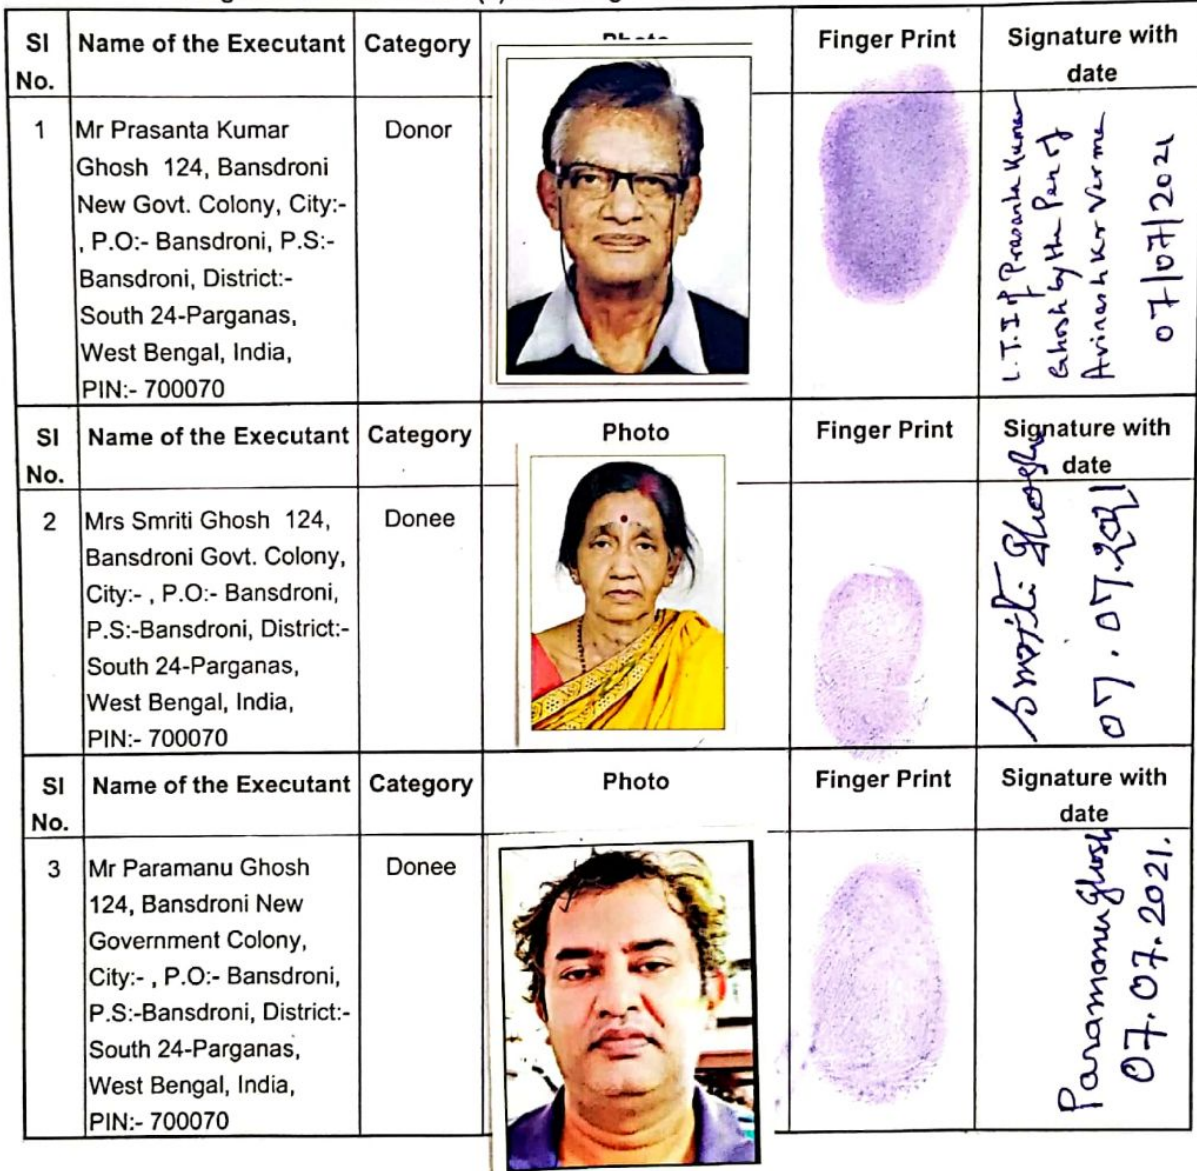 Sl No.
Name of the Executant
Category
Photo
Finger Print
Signature with date
1
Mr Prasanta Kumar
Ghosh 124, Bansdroni
New Govt. Colony, City:-
, P.O:- Bansdroni, P.S:-
Bansdroni, District:-
South 24-Parganas,
West Bengal, India,
PIN:- 700070
Donor
L.T.I of Prasanta Kumar
Ghosh by the Pen of
Avinash Kr Verma
07/07/2021
Sl No.
Name of the Executant
Category
Photo
Finger Print
Signature with date
2
Mrs Smriti Ghosh 124,
Bansdroni Govt. Colony,
City:- , P.O:- Bansdroni,
P.S:-Bansdroni, District:-
South 24-Parganas,
West Bengal, India,
PIN:- 700070
Donee
Smriti Ghosh
07.07.2021
Sl No.
Name of the Executant
Category
Photo
Finger Print
Signature with date
3
Mr Paramanu Ghosh
124, Bansdroni New
Government Colony,
City:- , P.O:- Bansdroni,
P.S:-Bansdroni, District:-
South 24-Parganas,
West Bengal, India,
PIN:- 700070
Donee
Paramanu Ghosh
07.07.2021.